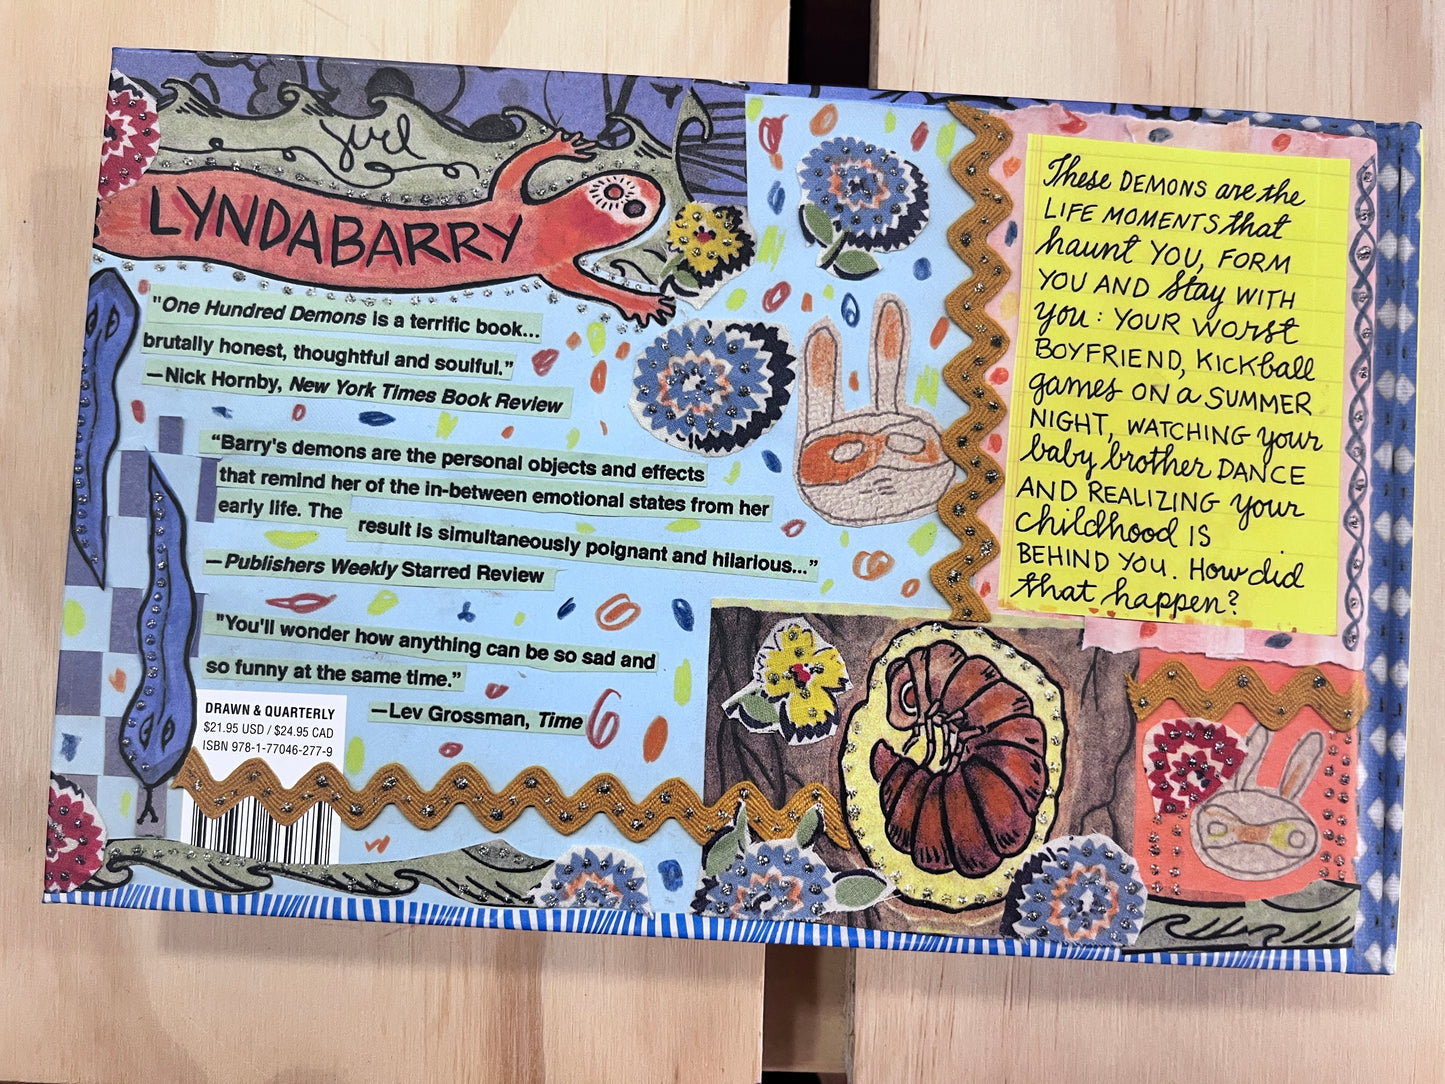 girl
LYNDABARRY
"One Hundred Demons is a terrific book...
brutally honest, thoughtful and soulful."
—Nick Hornby, New York Times Book Review
“Barry's demons are the personal objects and effects
that remind her of the in-between emotional states from her
early life. The result is simultaneously poignant and hilarious...”
—Publishers Weekly Starred Review
"You'll wonder how anything can be so sad and
so funny at the same time.”
—Lev Grossman, Time
DRAWN & QUARTERLY
$21.95 USD / $24.95 CAD
ISBN 978-1-77046-277-9
These DEMONS are the
LIFE MOMENTS that
haunt YOU, FORM
YOU AND Stay WITH
you: YOUR worst
BOYFRIEND, KICKball
games ON a SUMMER
NIGHT, WATCHING your
baby brother DANCE
AND REALIZING your
childhood IS
BEHIND YOU. How did
that happen?